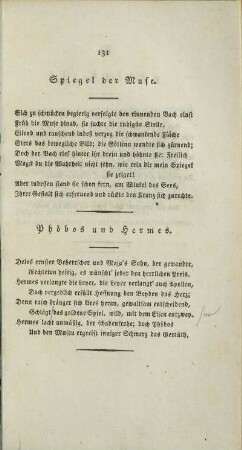 131
Spiegel der Muse.
Sich zu schmücken begierig verfolgte den rinnenden Bach einst
Früh die Muse hinab, sie suchte die ruhigste Stelle.
Eilend und rauschend indeß verzog die schwankende Fläche
Stets das bewegliche Bild; die Göttinn wandte sich zürnend;
Doch der Bach rief hinter ihr drein und höhnte sie: freilich
Magst du die Wahrheit nicht sehn, wie rein dir mein Spiegel
sie zeiget!
Aber indessen stand sie schon fern, am Winkel des Sees,
Ihrer Gestalt sich erfreuend und rückte den Kranz sich zurechte.
Phöbos und Hermes.
Delos ernster Beherrscher und Maja's Sohn, der gewandte,
Rechteten heftig, es wünscht' jeder den herrlichen Preis.
Hermes verlangte die Leyer, die Leyer verlangt' auch Apollon,
Doch vergeblich erfüllt Hoffnung den Beyden das Herz;
Denn rasch dränget sich Ares heran, gewaltsam entscheidend,
Schlägt das goldene Spiel, wild, mit dem Eisen entzwey.
Hermes lacht unmäßig, der schadenfrohe; doch Phöbos
Und den Musen ergreift inniger Schmerz das Gemüth.